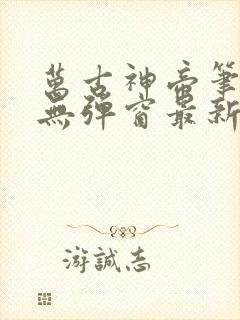 萬古神帝筆
無彈窗最新
游誠志